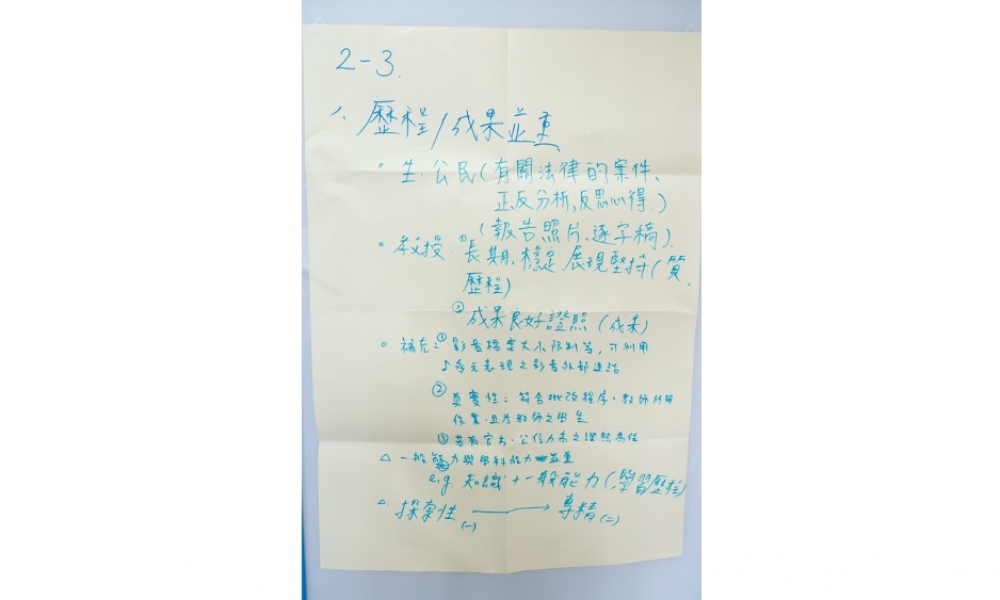 2-3.
1. 歷程/成果並重
。生:公民(有關法律的案件、
正反分析,反思心得.)
(報告照片、逐字稿)
。教授:①長期,穩定展現堅持(質、
歷程)
②成果良好證照(成果)
。補充:①影音檔案大小限制等,可利用
多元表現之影音外部連結
②真實性:符合批改程序、教師所開
作業,且為教師之學生
③若有官方、公信力高之證照為佳
△一般能力與學科能力並重
e.g. 知識+一般能力(學習歷程)
△.探索性(一) → 專精(二)